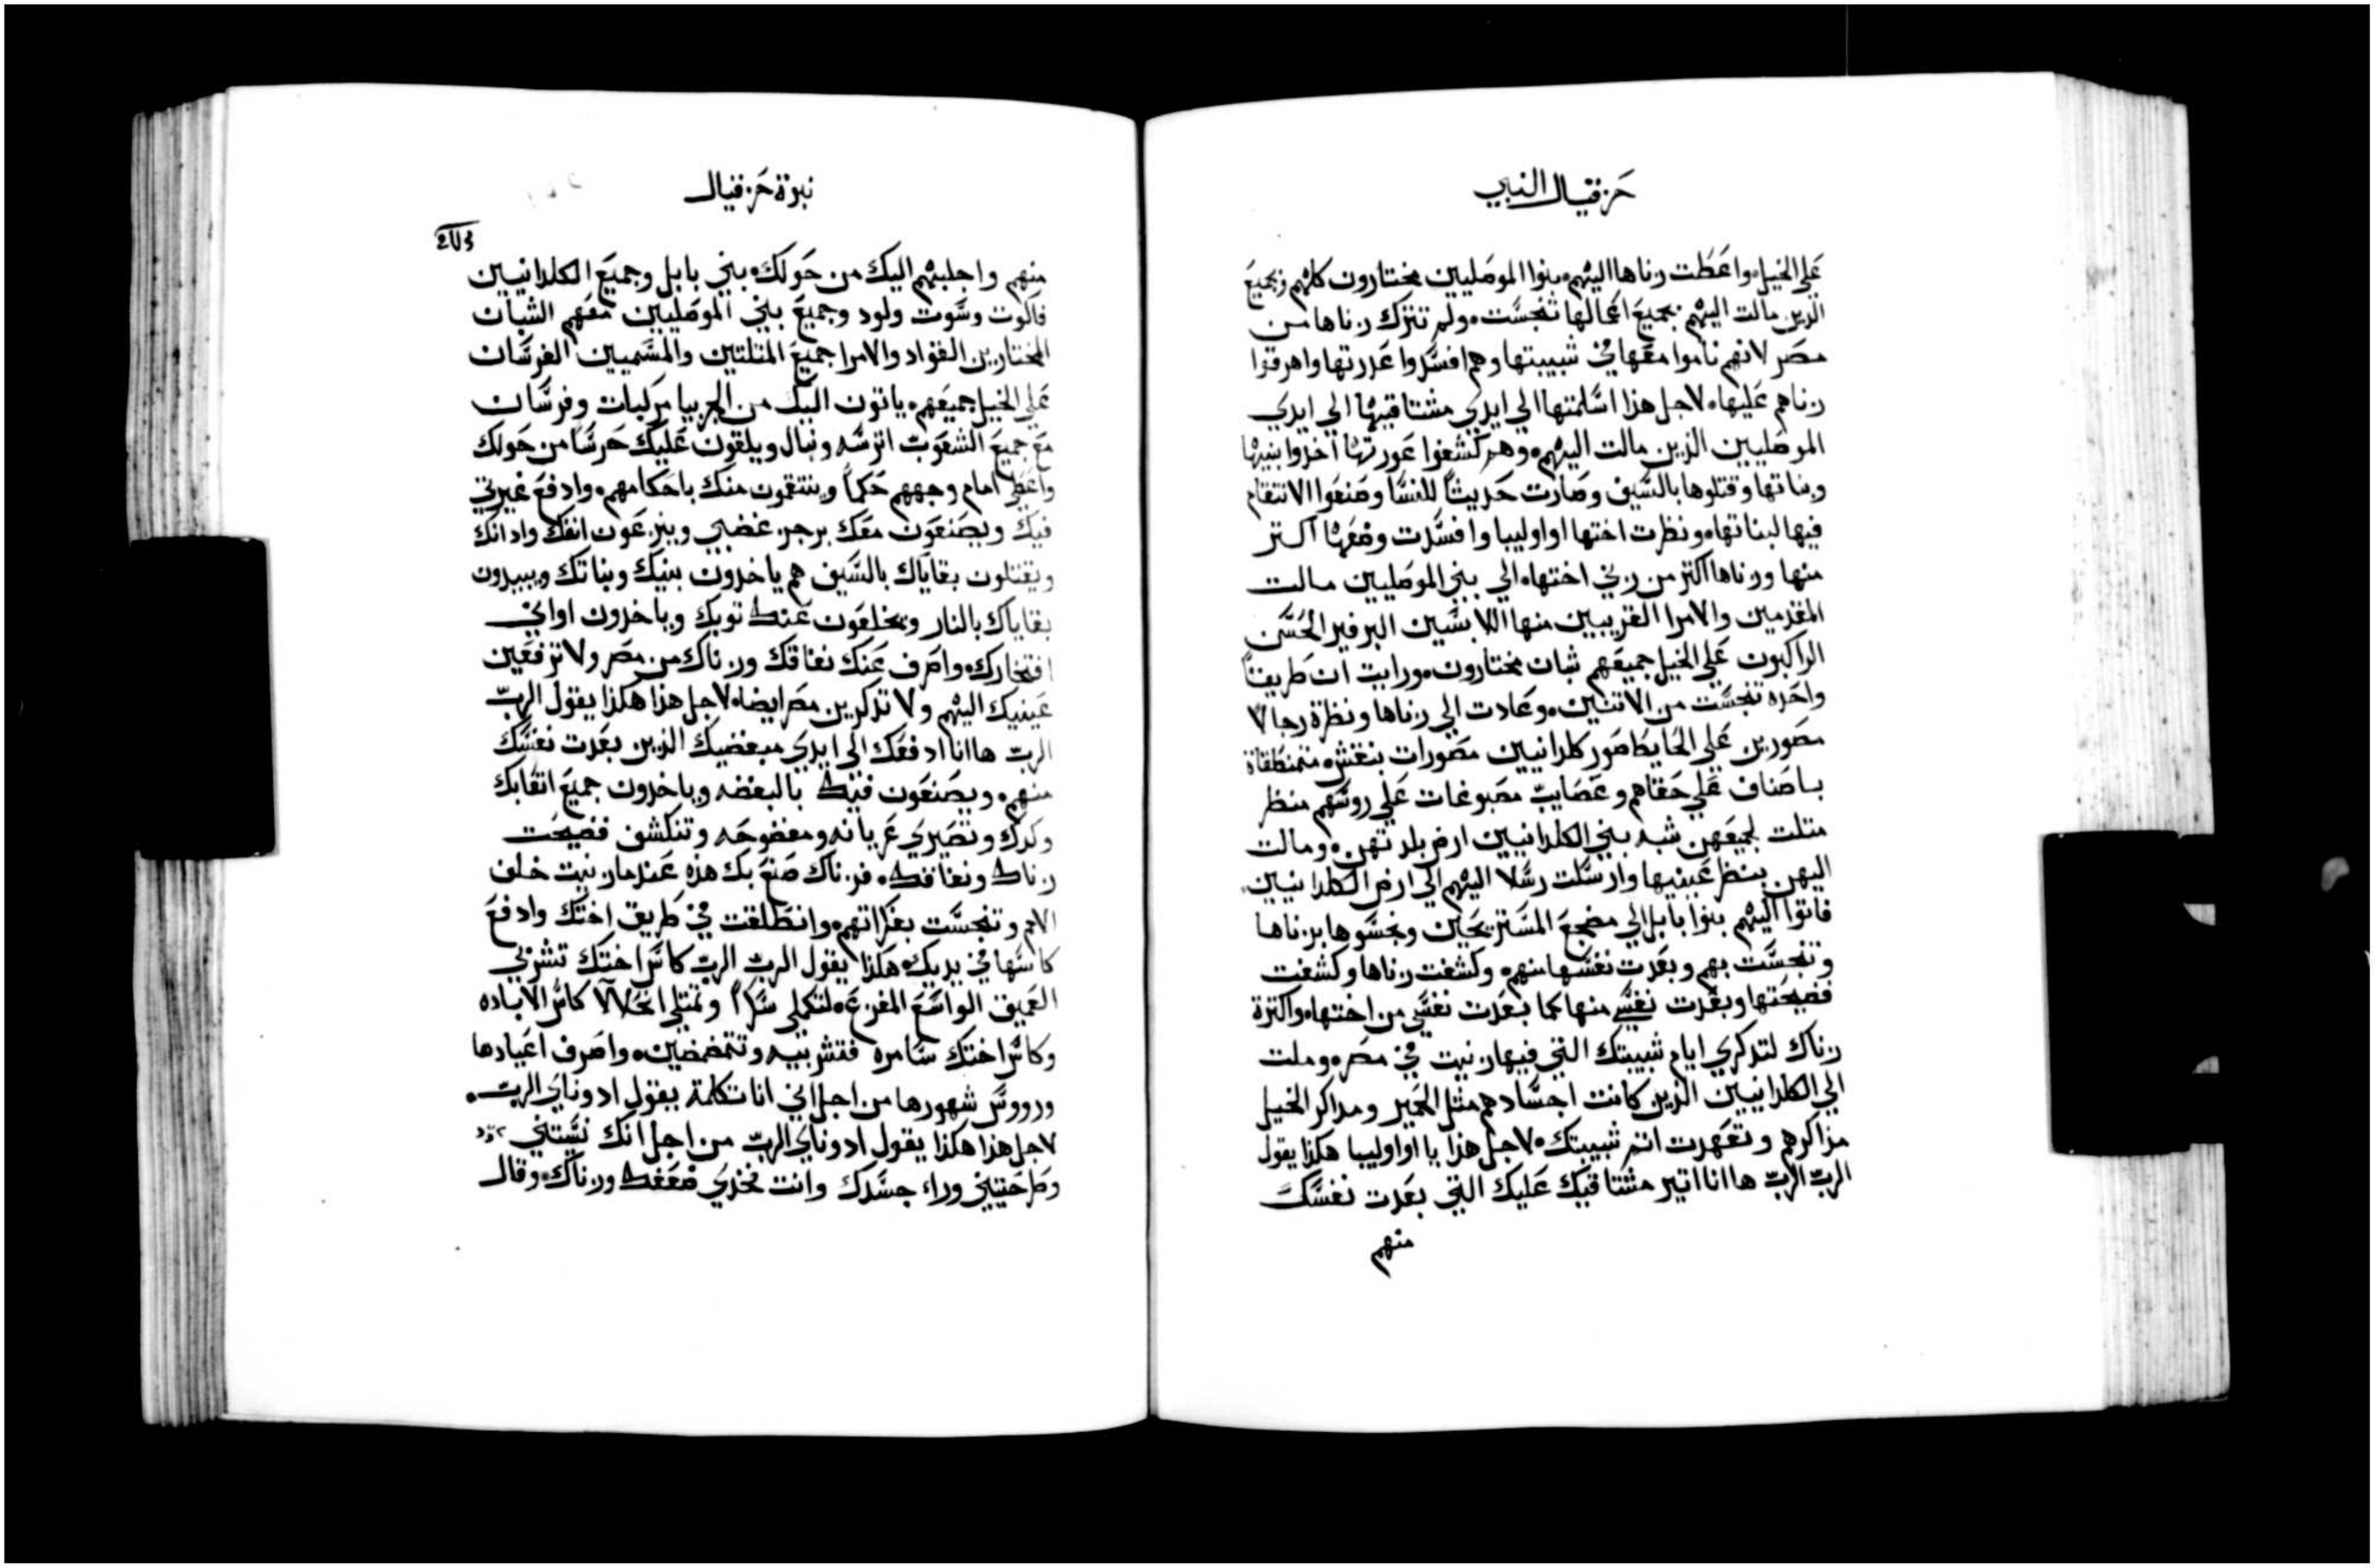 حزقيال النبي
علي الخيل واعطت زناها اليهم بنوا الموصليين مختارون كلهم وبجميع
الذين مالت اليهم بجميع اعمالها تنجست ولم تترك زناها من
مصر لانهم ناموا معها في شبيبتها وهم افسدوا عذرتها واهرقوا
زناهم عليها لاجل هذا اسلمتها الي ايدي مشتاقيها الي ايدي
الموصليين الذين مالت اليهم وهم كشفوا عورتها اخذوا بنيها
وبناتها وقتلوها بالسيف وصارت حديثاً للنسا وصنعوا الانتقام
فيها لبناتها ونظرت اختها اواوليبا وافسدت ومعها اكتر
منها وزناها اكتر من زني اختها الي بني الموصليين مالت
المقدمين والامرا القريبين منها اللابسين البرفير الحسن
الراكبون علي الخيل جميعهم شبان مختارون ورايت ان طريقتاً
واحده تنجست من الاتنين وعادت الي زناها ونظرة رجالا
مصورين علي الحايط صور كلدانيين مصورات بنقش متمنطقاة
باصناف علي حقاهم وعصايب مصبوغات علي روسهم منظر
متلت لجميعهن شبه بني الكلدانيين ارض بلدتهن ومالت
اليهن بنظر عينيها وارسلت رسلا اليهم الي ارض الكلدانيين
فاتوا اليهم بنوا بابل الي مضجع المستريحين ونجسوها بزناها
وتنجست بهم وبعدت نفسها منهم وكشفت زناها وكشفت
فضيحتها وبعدت نفسي منها كما بعدت نفسي من اختها واكترة
زناك لتدكري ايام شبيبتك التي فيها زنيت في مصر وملت
الي الكلدانيين الذين كانت اجسادهم مثل الحمير ومداكر الخيل
مذاكرهم وتعهدت اتم شبيبتك لاجل هذا يا اواوليبا هكذا يقول
الرب الرب ها انا اتير مشتاقيك عليك التي بعدت نفسك
منهم
نبوة حزقيال
منهم واجلبهم اليك من حولك بني بابل وجميع الكلدانيين
فاكوت وسوت ولود وجميع بني الموصليين معهم الشبان
المختارين القواد والامرا جميع المتلتين والمسميين الفرسان
علي الخيل جميعهم ياتون اليك من الجربيا مركبات وفرسان
مع جميع الشعوب اترسه ونبال ويلقون عليك حرسا من حولك
واعطي امام وجههم حكماً وينتقمون منك باحكامهم وادفع غيرتي
فيك ويصنعون معك برجز غضبي وينزعون انفك وادانك
ويقتلون بقاياك بالسيف هم ياخذون بنيك وبناتك ويبيدون
بقاياك بالنار ويخلعون عنك توبك وياخذون اواني
افتخارك واصرف عنك نفاقك وزناك من مصر ولا ترفعين
عينيك اليهم ولا تدكرين مصر ايضا لاجل هذا هكذا يقول الرب
الرب ها انا ادفعك الي ايدي مبغضيك الذين بعدت نفسك
منهم ويصنعون فيك بالبغضه وياخذون جميع اتعابك
وكدك وتصيري عريانه ومفضوحه وتنكشف فضيحت
زناك ونفاقك فزناك صنع بك هذه عندما زنيت خلف
الامم وتنجست بفكراتهم وانطلقت في طريق اختك وادفع
كاسها في يديك هكذا يقول الرب الرب كاس اختك تشربي
العميق الواسع المفزع لتكملي سكراً وتمتلي انحلالا كاس الاباده
وكاس اختك سامره فتشربيه وتتمضمضين واصرف اعيادها
ورووس شهورها من اجل اني انا تكلمة يقول ادوناي الرب
لاجل هذا هكذا يقول ادوناي الرب من اجل انك نسيتني
وطرحتيني وراء جسدك وانت تخذي نفاقك وزناك وقال